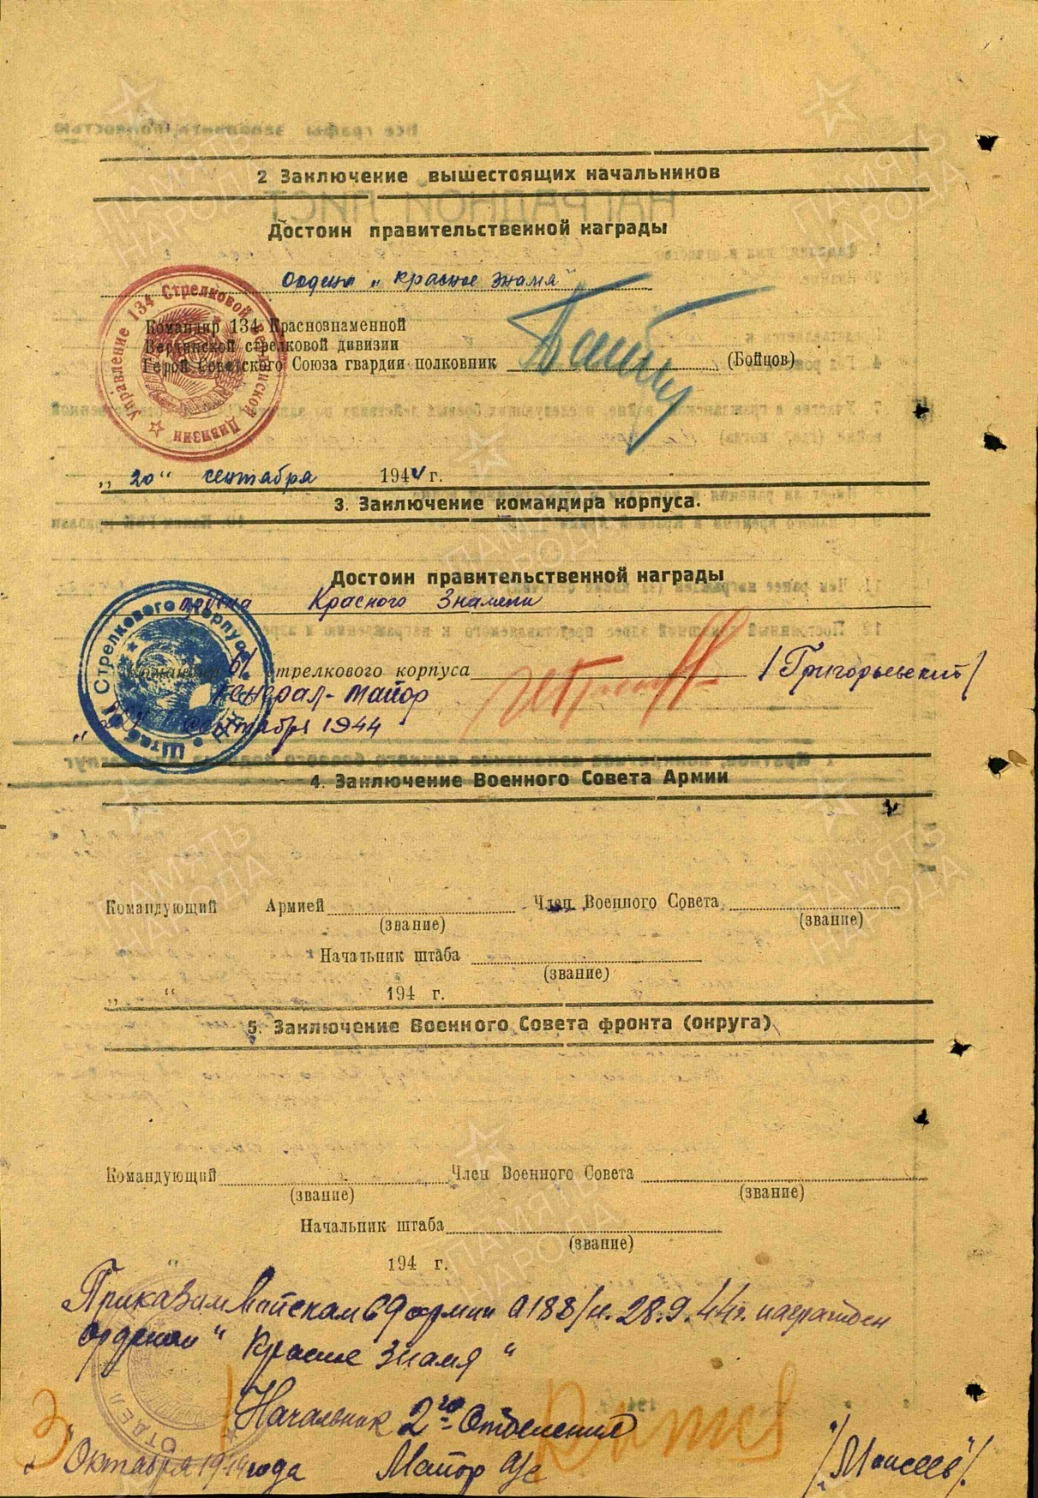 2 Заключение вышестоящих начальников
Достоин правительственной награды
Орден „Красное Знамя"
Командир 134 Краснознаменной
Вердинской стрелковой дивизии
Герой Советского Союза гвардии полковник (Бойцов)
„20" сентября 1944 г.
3. Заключение командира корпуса.
Достоин правительственной награды
ордена Красного Знамени
Командир 61 стрелкового корпуса /Григорьевский/
Генерал-майор
сентября 1944
4. Заключение Военного Совета Армии
Командующий Армией Член Военного Совета
(звание) (звание)
Начальник штаба
(звание)
„ " 194 г.
5. Заключение Военного Совета фронта (округа)
Командующий Член Военного Совета
(звание) (звание)
Начальник штаба
(звание)
194 г.
Приказом Войскам 69 армии 0188/н. 28.9.44г. награжден
орденом "Красное Знамя"
Начальник 2го Отделения
Октября 1944 года Майор а/с /Моисеев/